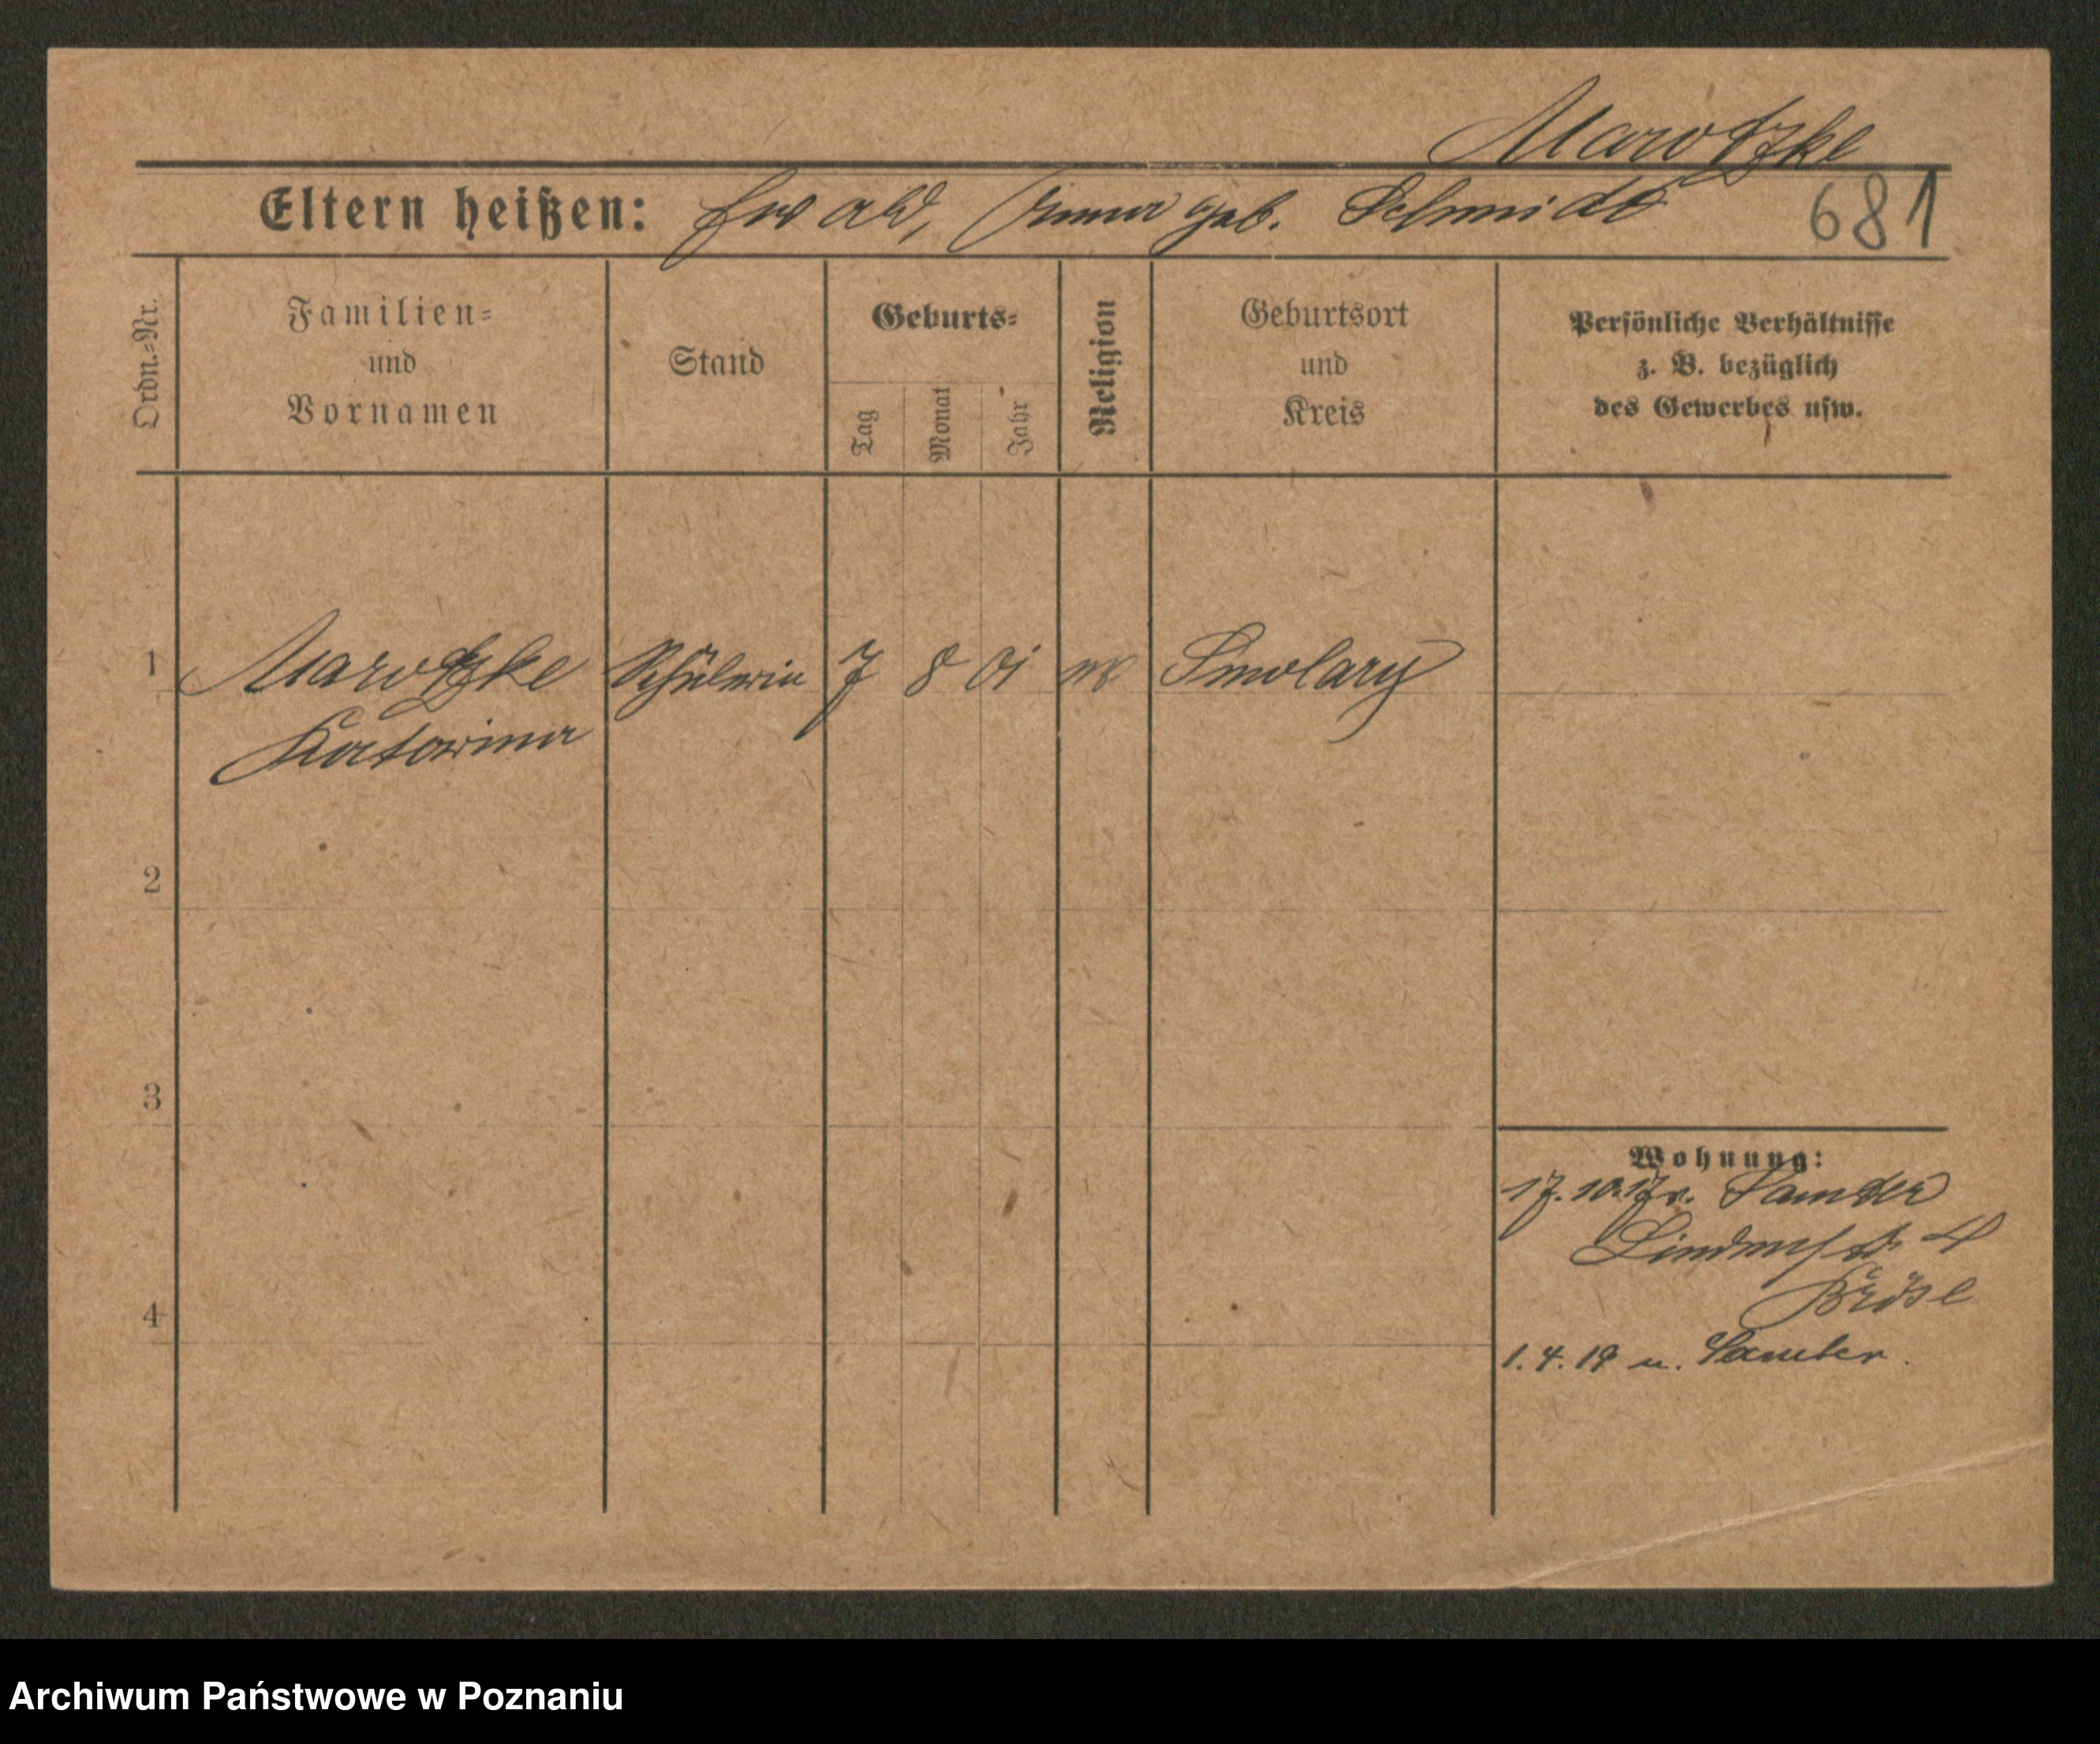 Marotzke
Eltern heißen: Ewald, Emma geb. Schmidt 681
Ordn.=Nr.
Familien=
und
Vornamen
Stand
Geburts=
Tag
Monat
Jahr
Religion
Geburtsort
und
Kreis
Persönliche Verhältnisse
z. B. bezüglich
des Gewerbes usw.
1 Marotzke Schülerin 7 8 01 Smolary
Katarina
2
3
4
Wohnung:
17.10.17 v. Samter
Lindenstr. 4
1.4.18 n. Samter.
Archiwum Państwowe w Poznaniu